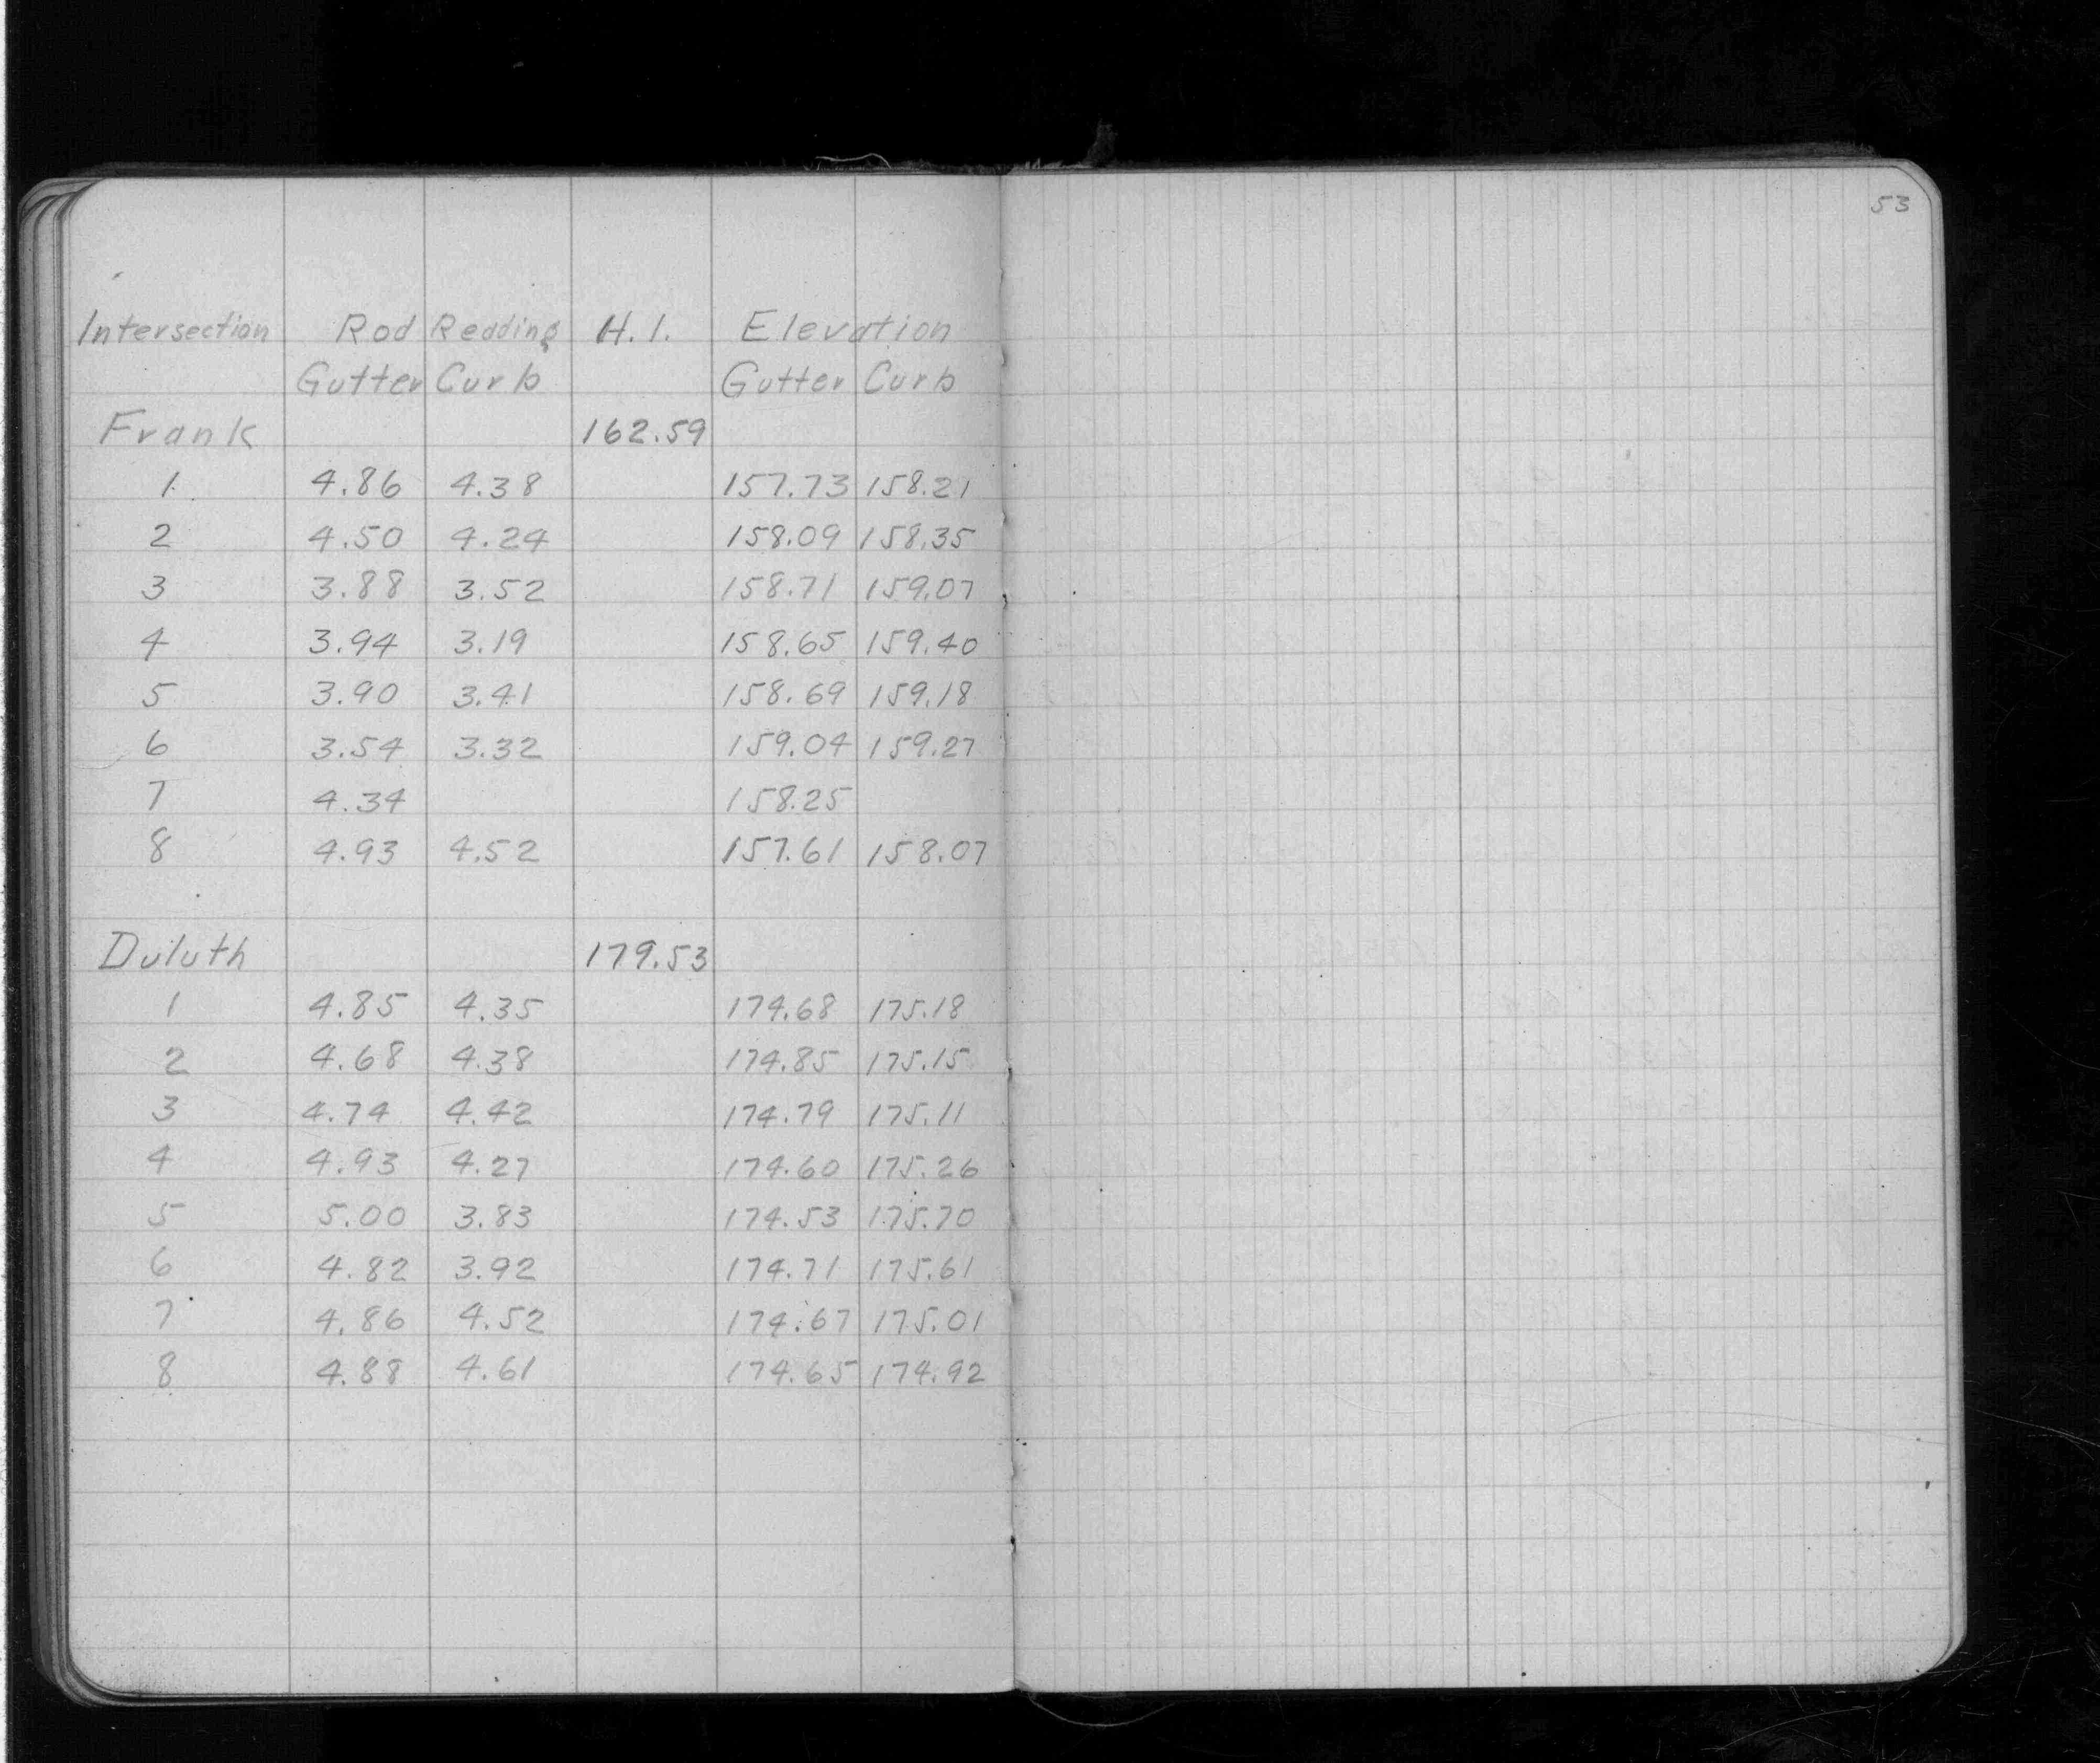 53
Intersection Rod Reading H.I. Elevation
Gutter Curb Gutter Curb
Frank 162.59
1 4.86 4.38 157.73 158.21
2 4.50 4.24 158.09 158.35
3 3.88 3.52 158.71 159.07
4 3.94 3.19 158.65 159.40
5 3.90 3.41 158.69 159.18
6 3.54 3.32 159.04 159.27
7 4.34 158.25
8 4.93 4.52 157.61 158.07
Duluth 179.53
1 4.85 4.35 174.68 175.18
2 4.68 4.38 174.85 175.15
3 4.74 4.42 174.79 175.11
4 4.93 4.27 174.60 175.26
5 5.00 3.83 174.53 175.70
6 4.82 3.92 174.71 175.61
7 4.86 4.52 174.67 175.01
8 4.88 4.61 174.65 174.92